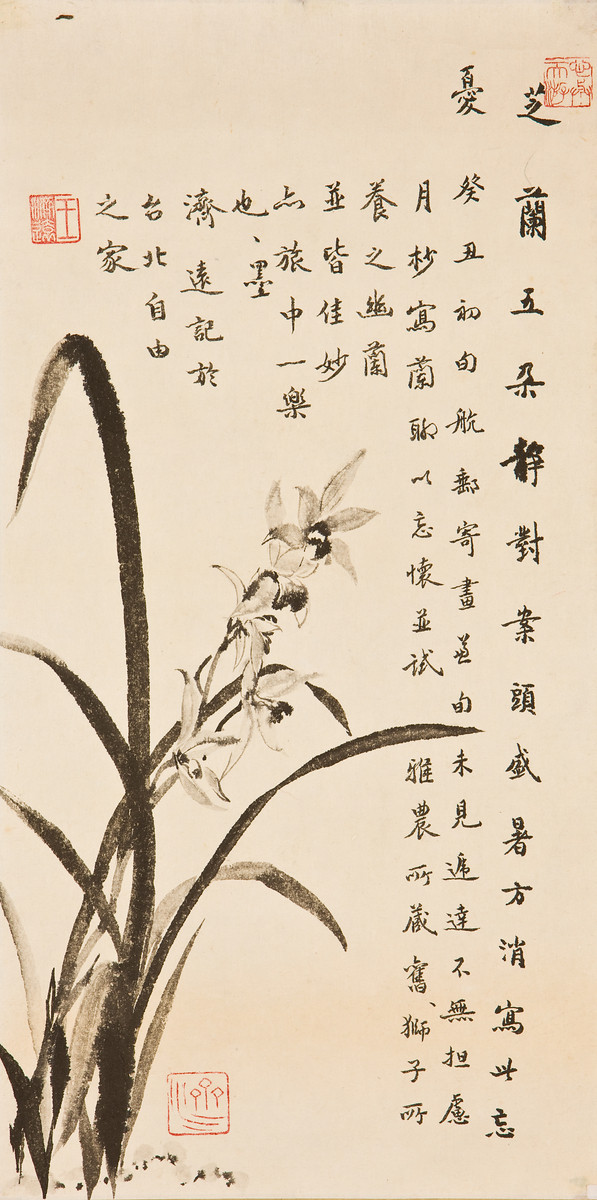 芝蘭五朵靜對案頭盛暑方消寫此忘
憂
癸丑初旬航郵寄畫兼旬未見遞達不無担慮
月杪寫蘭聊以忘懷並試 雅農所藏舊、獅子所
養之幽蘭
並皆佳妙
亦旅中一樂
也、墨
濟遠記於
台北自由
之家
王濟遠